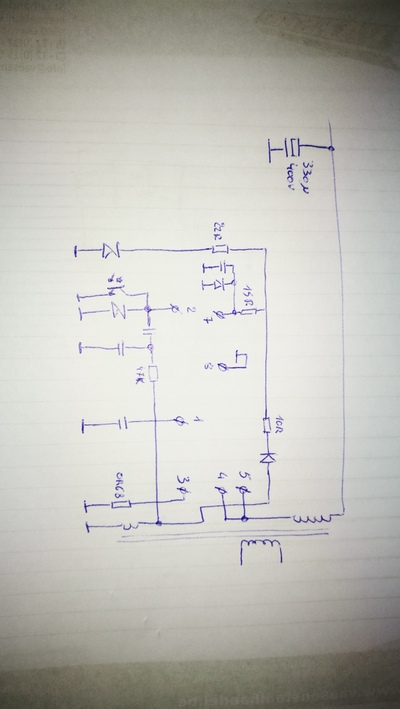 330µ
400V
22R
15R
7
2
8
47K
10R
1
0R68
3
4
5